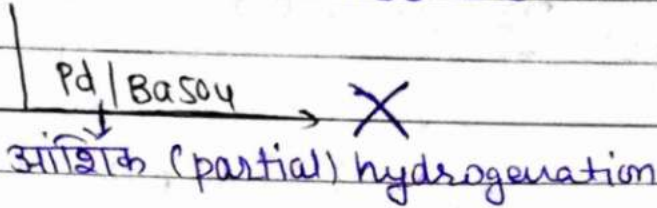 Pd | BaSO4
X
आंशिक (partial) hydrogenation